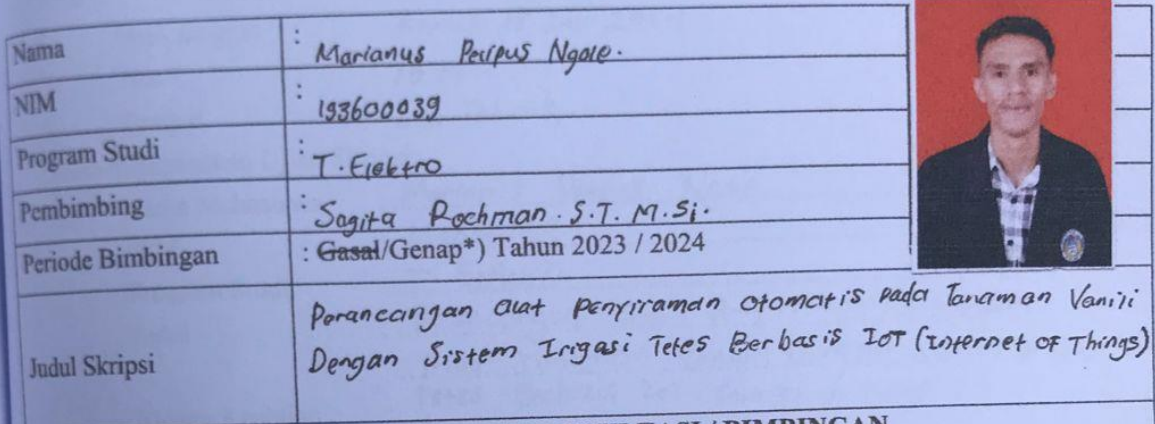 Nama : Marianus Peripus Ngole.
NIM : 193600039
Program Studi : T. Elektro
Pembimbing : Sagita Rochman. S.T. M.Si.
Periode Bimbingan : Gasal/Genap*) Tahun 2023 / 2024
Judul Skripsi
Perancangan alat penyiraman otomatis pada Tanaman Vanili
Dengan Sistem Irigasi Tetes Berbasis IoT (Internet OF Things)
BIMBINGAN